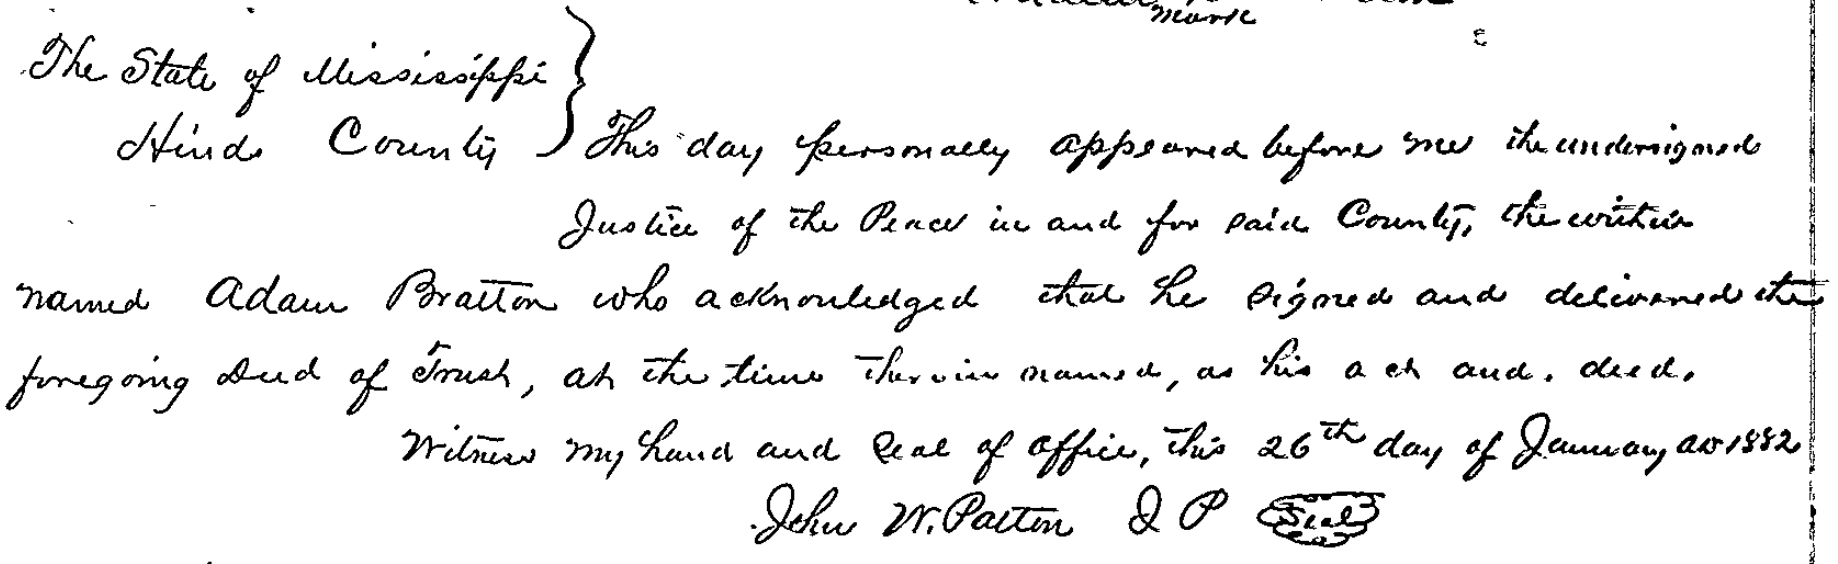 mark
The State of Mississippi
Hinds County } This day personally appeared before me the undersigned
Justice of the Peace in and for said County, the within
named Adam Bratton who acknowledged that he signed and delivered the
foregoing Deed of Trust, at the time therein named, as his act and. deed.
Witness my hand and seal of office, this 26th day of January AD 1882
John W. Patton J P Seal